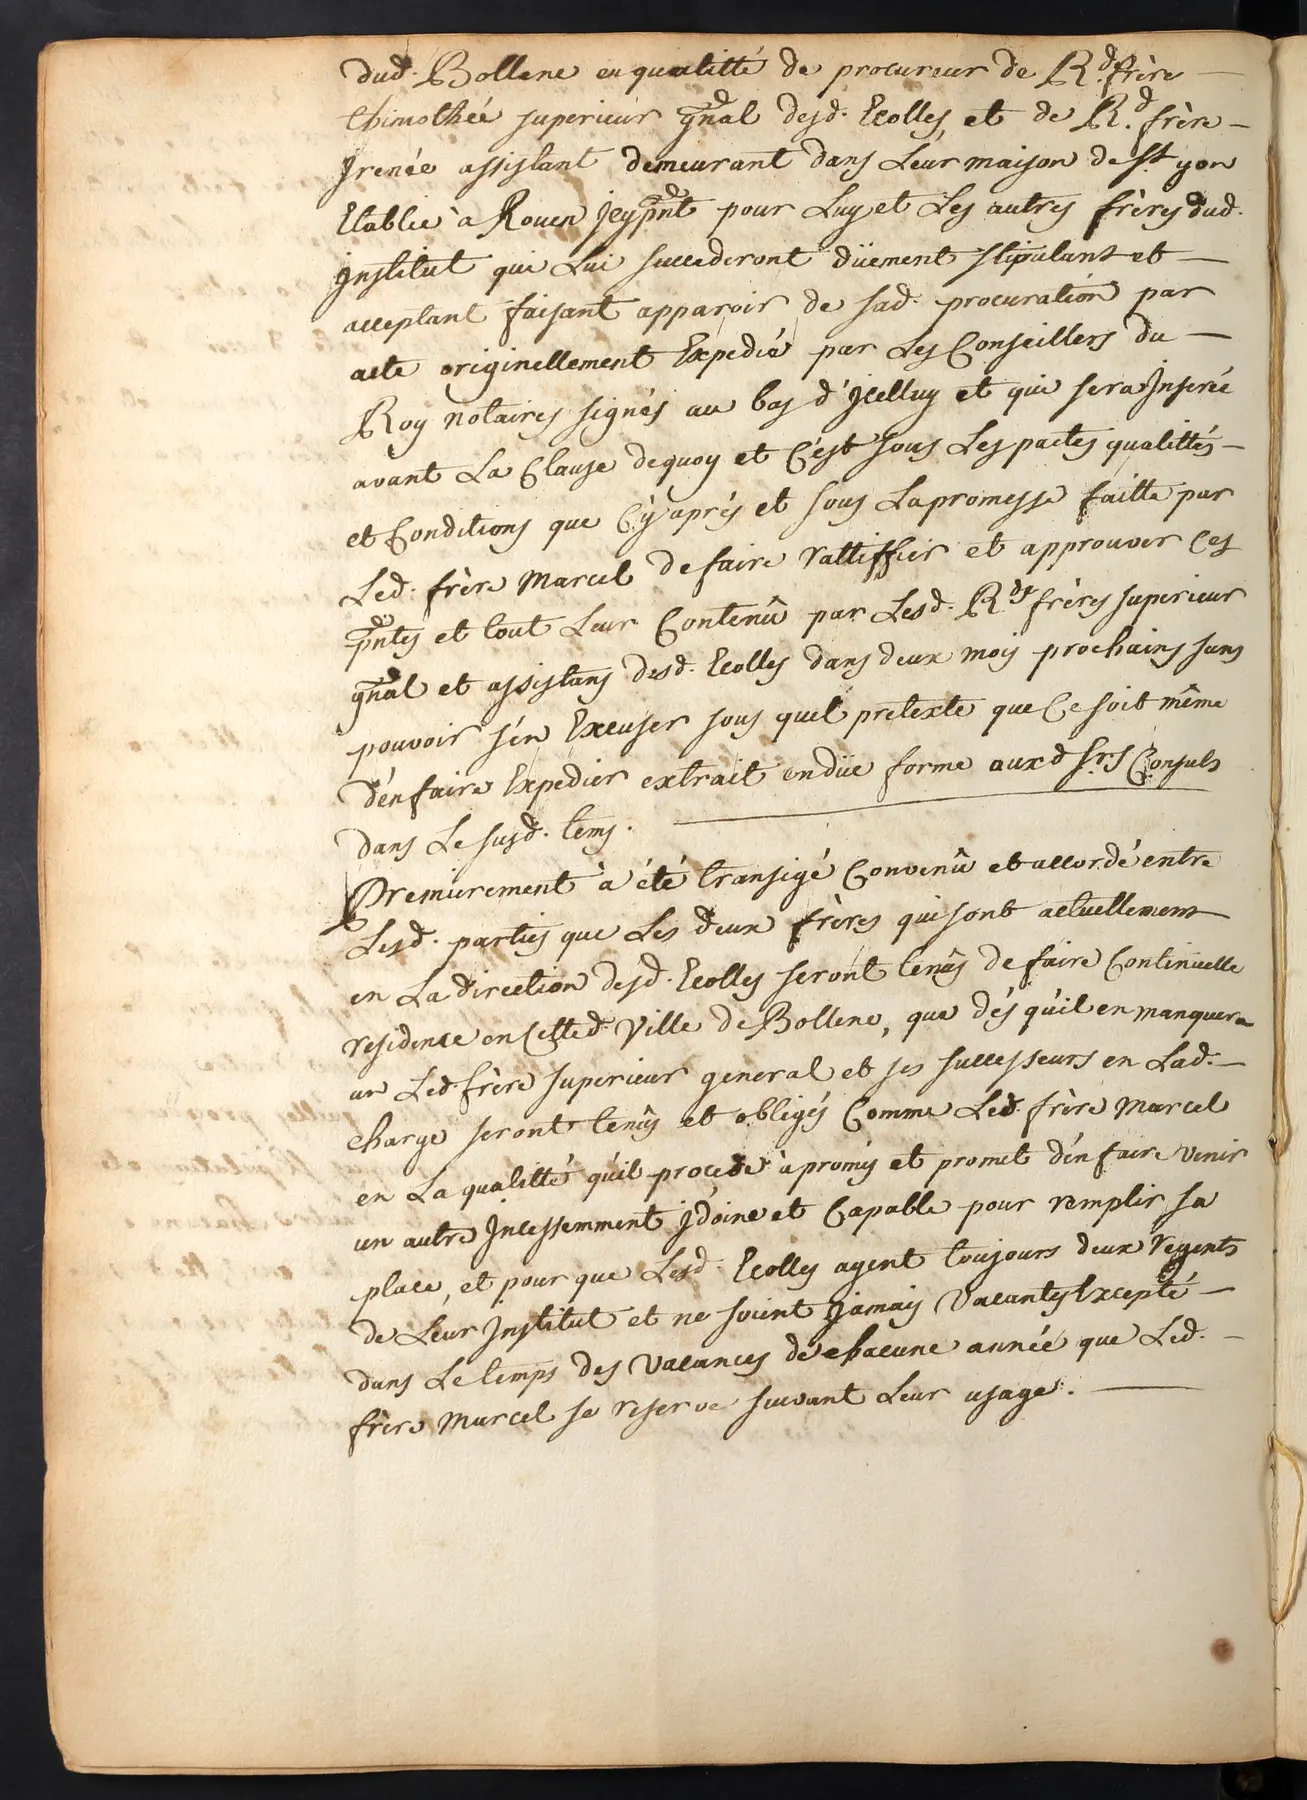 dud. Bollene en qualitté de procureur de R.d frère
thimothée superieur gñal desd. Ecolles, et de R.d frère
Jrenée assistant demeurant dans Leur maison de St yon
Etablie à Rouen Jcy pñt pour Luy et Les autres frères dud.
Jnstitut qui Lui succederont düement stipulant et
acceptant faisant apparoir de sad. procuration par
acte originellement Expedié par Les Conseillers du
Roy notaires signés au bas d'Jcelluy et qui sera Jnserée
avant La Clause dequoy et C'est sous Les pactes qualittés
et Conditions que C'y aprés et sous La promesse faitte par
Led. frère Marcel de faire rattiffier et approuver Ces
pñtes et tout Leur Contenû par Lesd. R.ds frères superieur
gñal et assistans desd. Ecolles dans deux mois prochains sans
pouvoir s'én Excuser sous quel pretexte que Ce soit même
d'én faire Expedier extrait en düe forme auxd Srs Consuls
dans Le susd. tems.
Premierement à été transigé Convenû et accordé entre
Lesd. parties que Les deux frères qui sont actuellement
en La direction desd. Ecolles seront tenûs de faire Continüelle
residence en Cetted. Ville de Bollene, que dés qu'il en manquera
un Led. frère superieur general et ses successeurs en Lad.
charge seront tenûs et obligés Comme Led. frère Marcel
en La qualitté qu'il procede à promis et promet d'én faire venir
un autre Jncessemment Jdoine et Capable pour remplir sa
place, et pour que Lesd. Ecolles ayent toujours deux regents
de Leur Jnstitut et ne soient Jamais Vacantes Excepté
dans Le temps des Vacances de chacune année que Led.
frère Marcel se reserve suivant Leur usage.